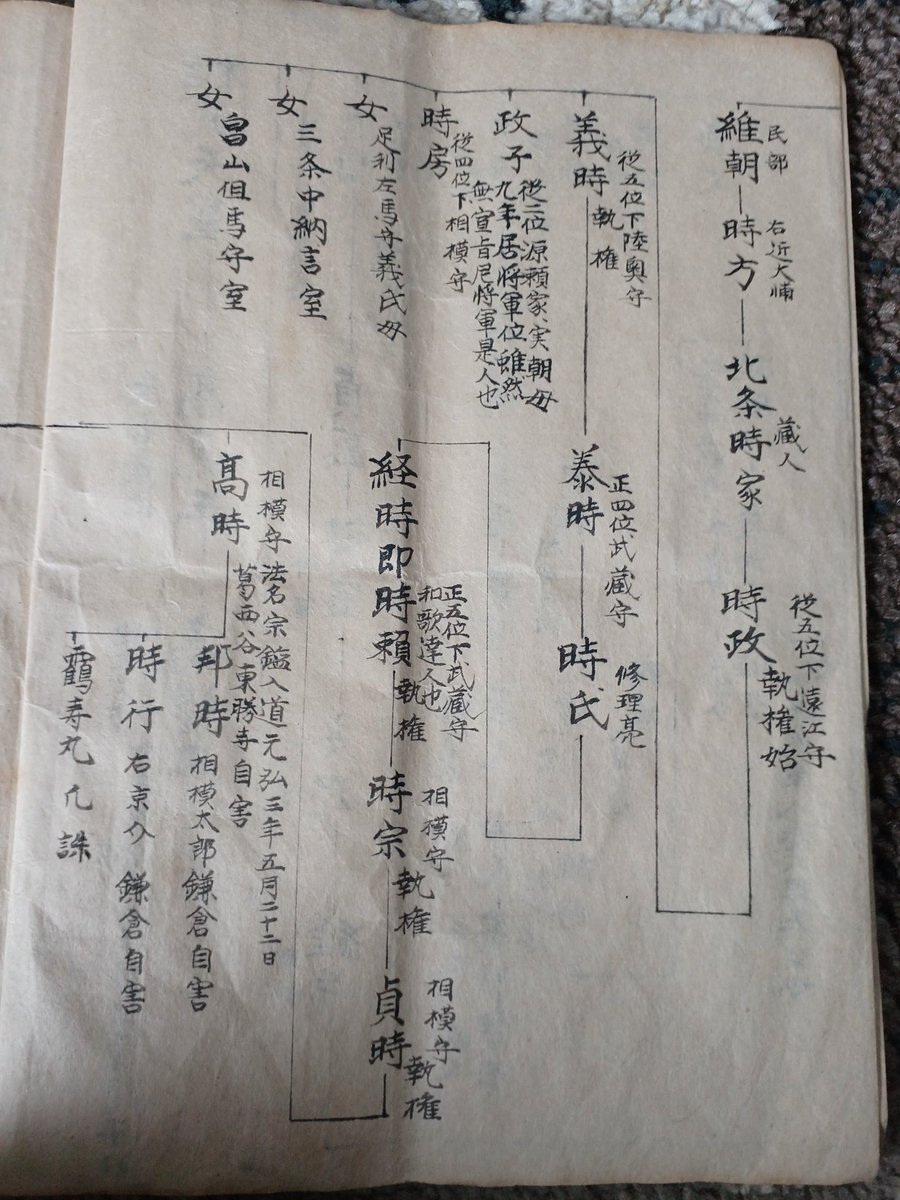 民部
維朝
右近大輔
時方
蔵人
北条時家
従五位下遠江守
時政
執権始
従五位下陸奥守
義時
執権
正四位武蔵守
泰時
修理亮
時氏
政子
従二位源頼家、実朝母
九年居将軍位雖然
無宣旨尼将軍是人也
時房
従四位下相模守
女
足利左馬守義氏母
女
三条中納言室
女
畠山但馬守室
経時即時頼
正五位下武蔵守
和歌達人也
執権
相模守
時宗
執権
相模守
貞時
執権
高時
相模守法名宗鑑入道元弘三年五月二十二日
葛西谷東勝寺自害
邦時
相模太郎鎌倉自害
時行
右京介鎌倉自害
鶴寿丸
誅